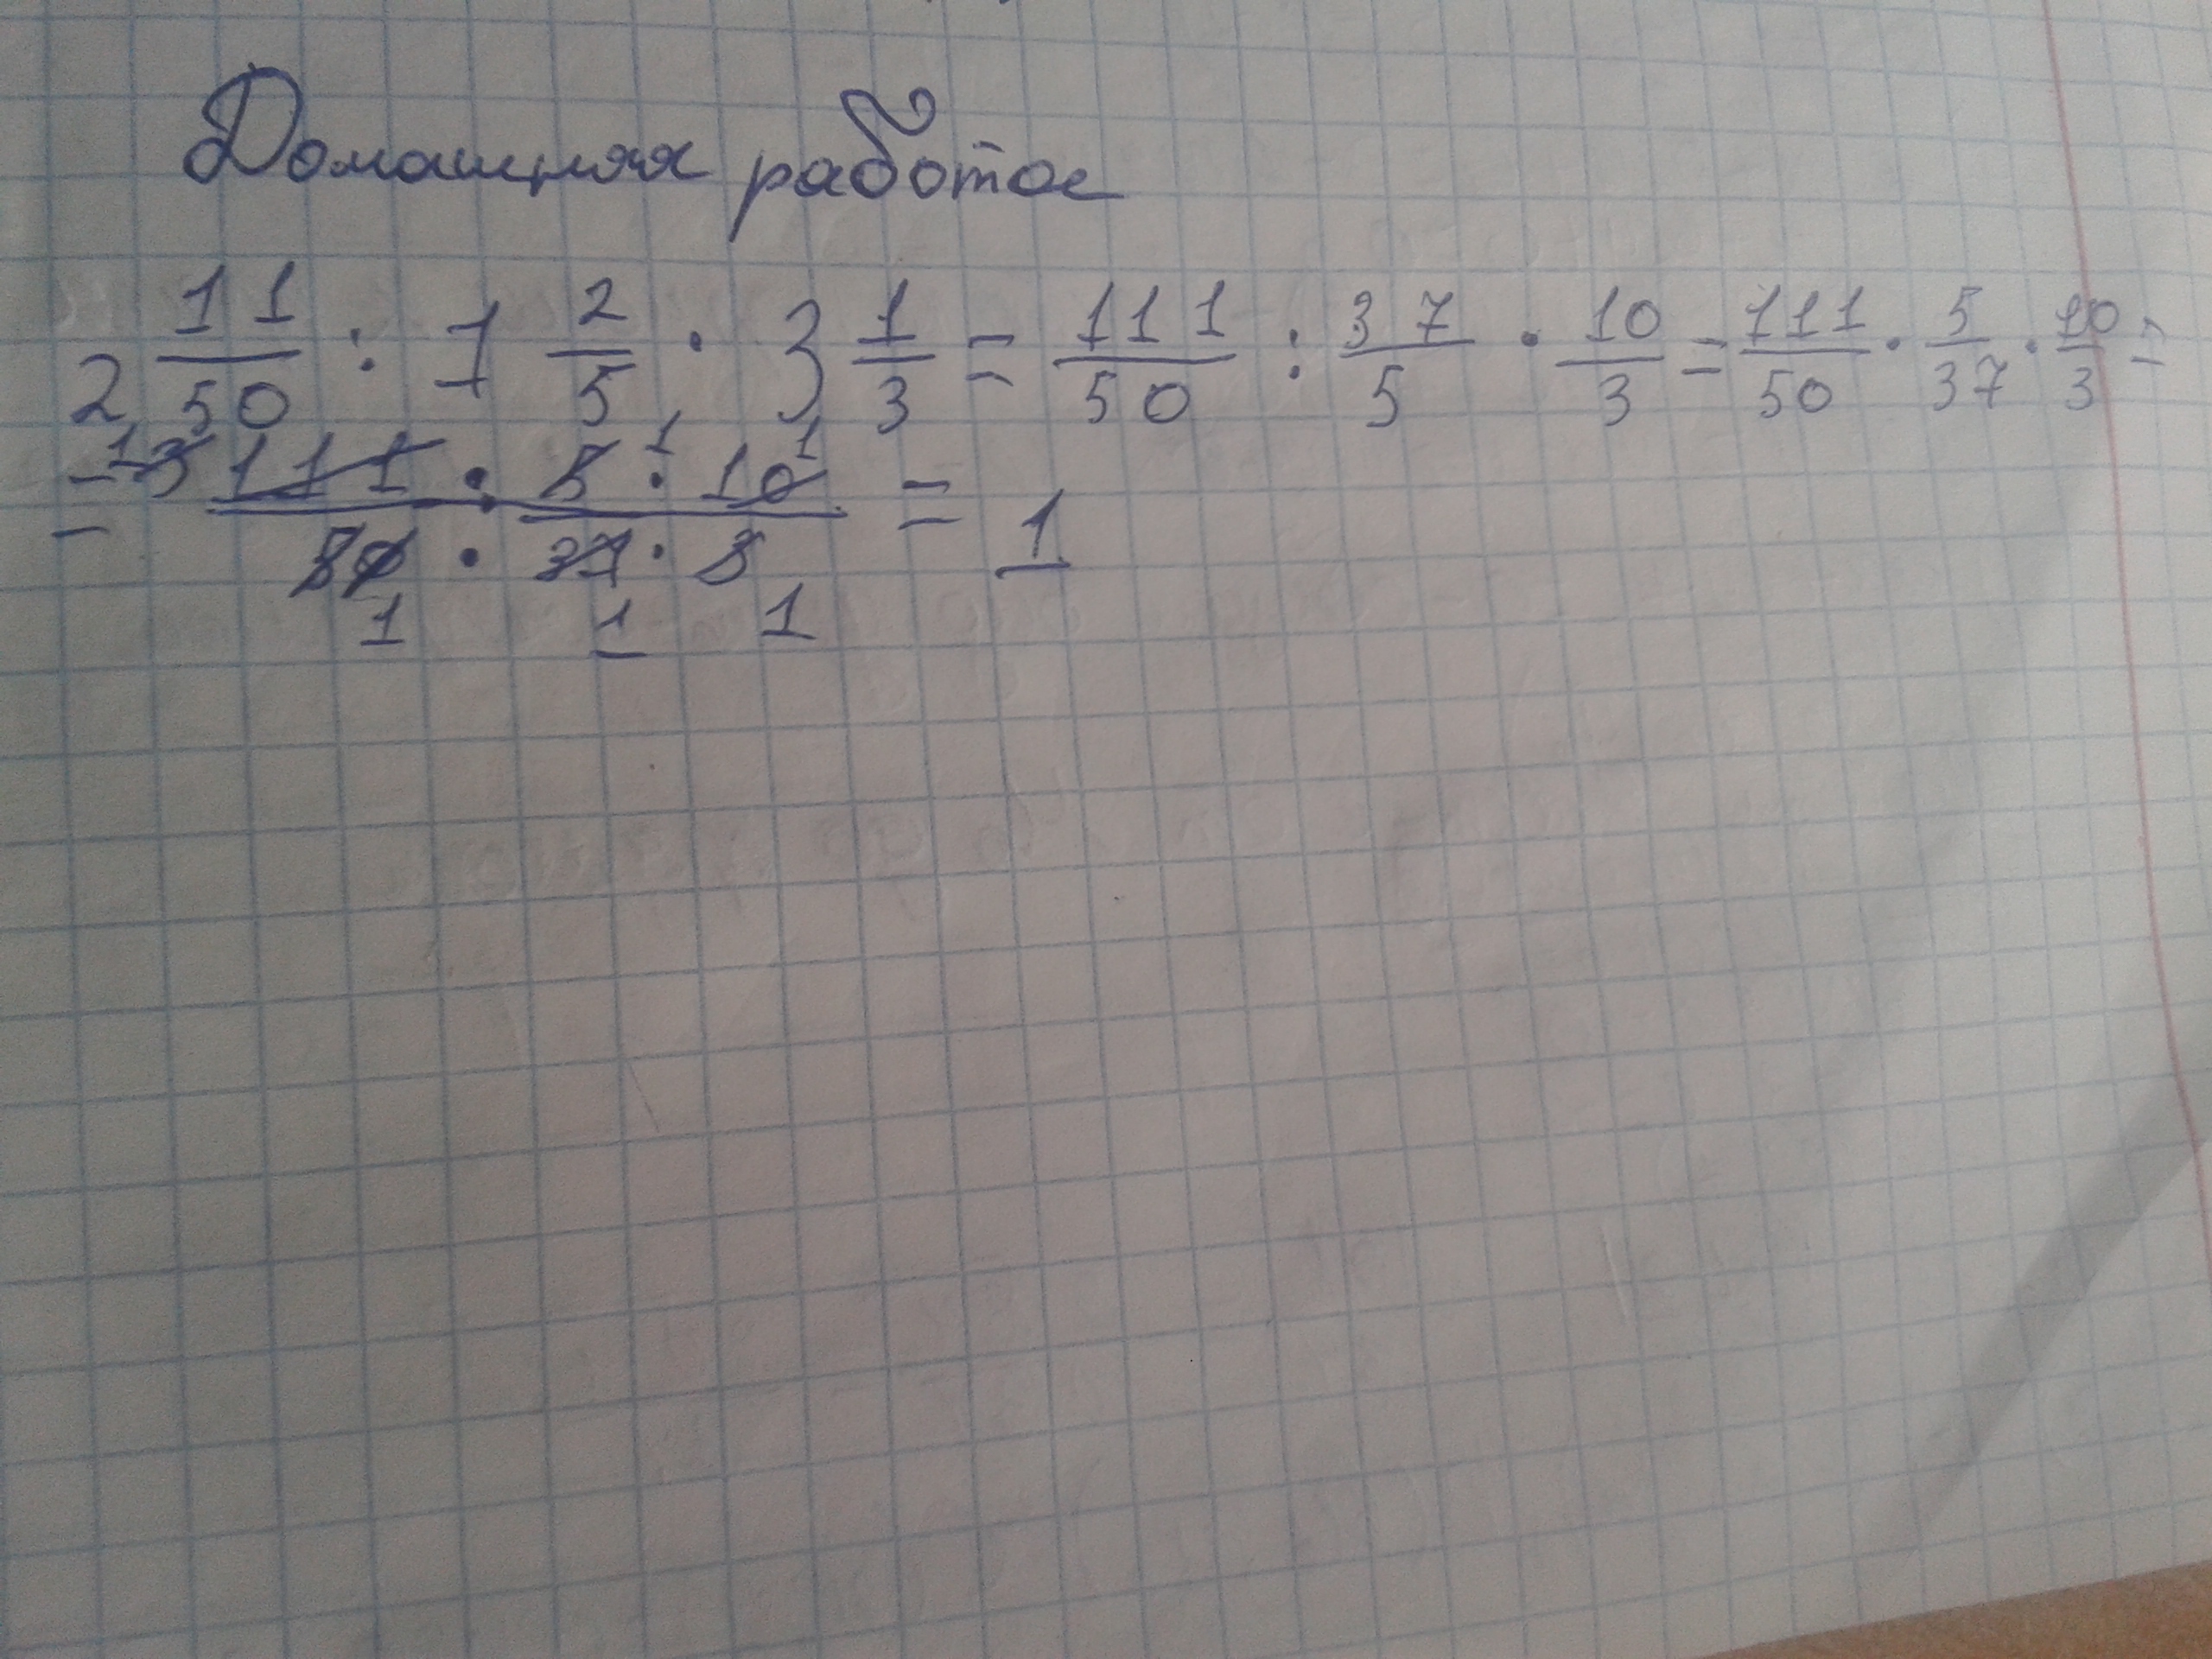 Домашняя работа
2 11/50 : 1 2/5 · 3 1/3 = 111/50 : 37/5 · 10/3 = 111/50 · 5/37 · 10/3 =
= 1 3 111 · 5 1 · 10 1 / 50 · 37 · 3 = 1
1 1 1